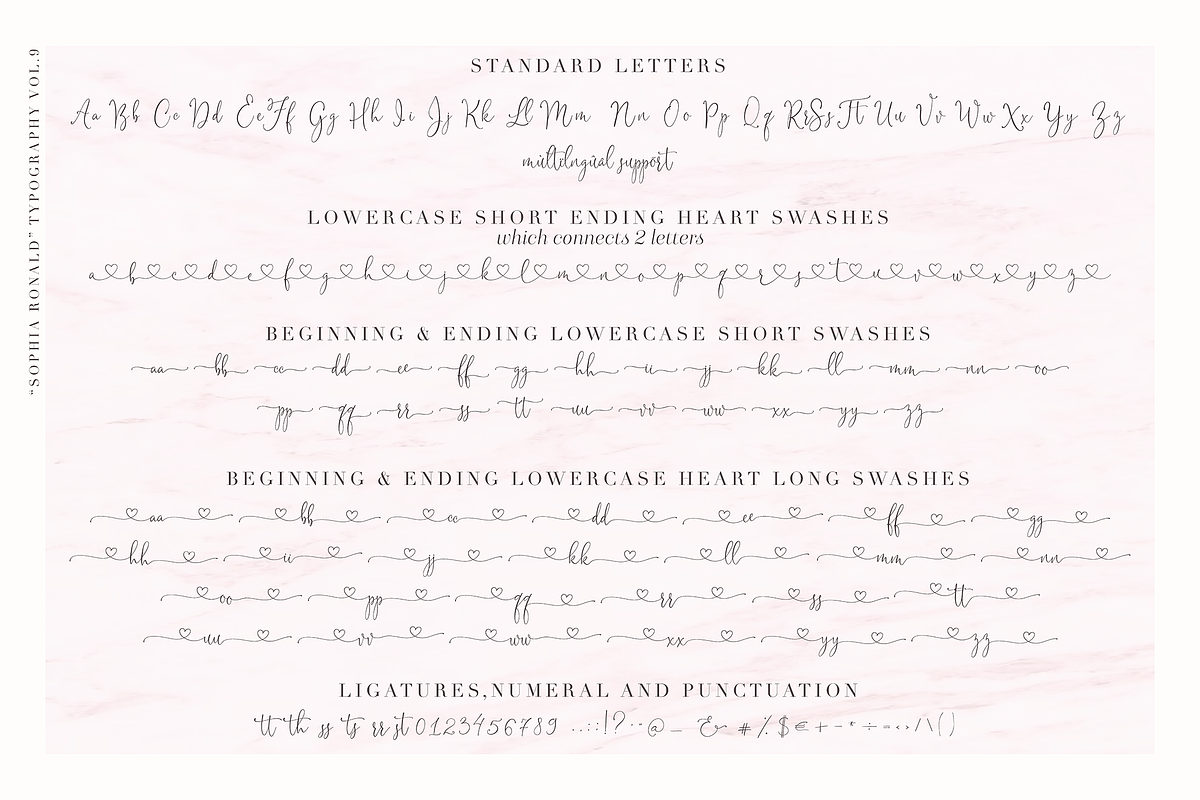 "SOPHIA RONALD" TYPOGRAPHY VOL.9
STANDARD LETTERS
Aa Bb Cc Dd Ee Ff Gg Hh Ii Jj Kk Ll Mm Nn Oo Pp Qq Rr Ss Tt Uu Vv Ww Xx Yy Zz
multilngual support
LOWERCASE SHORT ENDING HEART SWASHES
which connects 2 letters
a♡b♡c♡d♡e♡f♡g♡h♡i♡j♡k♡l♡m♡n♡o♡p♡q♡r♡s♡t♡u♡v♡w♡x♡y♡z♡
BEGINNING & ENDING LOWERCASE SHORT SWASHES
aa bb cc dd ee ff gg hh ii jj kk ll mm nn oo
pp qq rr ss tt uu vv ww xx yy zz
BEGINNING & ENDING LOWERCASE HEART LONG SWASHES
♡aa♡ ♡bb♡ ♡cc♡ ♡dd♡ ♡ee♡ ♡ff♡ ♡gg♡
♡hh♡ ♡ii♡ ♡jj♡ ♡kk♡ ♡ll♡ ♡mm♡ ♡nn♡
♡oo♡ ♡pp♡ ♡qq♡ ♡rr♡ ♡ss♡ ♡tt♡
♡uu♡ ♡vv♡ ♡ww♡ ♡xx♡ ♡yy♡ ♡zz♡
LIGATURES,NUMERAL AND PUNCTUATION
tt th ss ts rr st 0123456789 ..:;!?··@_ & # % $ € + - * ÷ = ‹ › / \ ( )